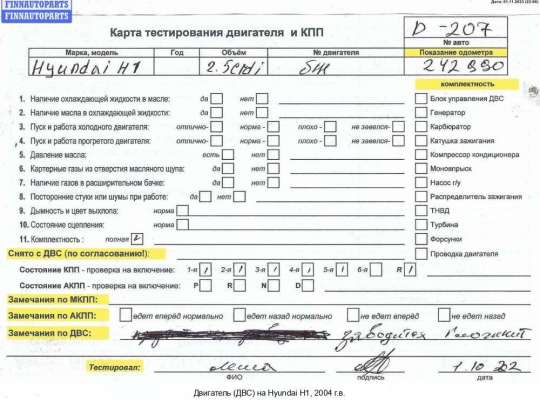 FINNAUTOPARTS
FINNAUTOPARTS
Карта тестирования двигателя и КПП
D - 207
№ авто
Марка, модель Год Объём № двигателя Показание одометра
Hyundai H1 2.5crdi
комплектность
1. Наличие охлаждающей жидкости в масле: да нет Блок управления ДВС
2. Наличие масла в охлаждающей жидкости: да нет Генератор
3. Пуск и работа холодного двигателя: отлично- норма - плохо - не завелся- Карбюратор
4. Пуск и работа прогретого двигателя: отлично- норма - плохо - не завелся- Катушка зажигания
5. Давление масла: есть нет Компрессор кондиционера
6. Картерные газы из отверстия масляного щупа: да нет Моновпрыск
7. Наличие газов в расширительном бачке: да нет Насос г/у
8. Посторонние стуки или шумы при работе: да нет Распределитель зажигания
9. Дымность и цвет выхлопа: норма ТНВД
10. Состояние сцепления: норма Турбина
11. Комплектность : полная Форсунки
Снято с ДВС (по согласованию!): Проводка двигателя
Состояние КПП - проверка на включение: 1-я 2-я 3-я 4-я 5-я 6-я R
Состояние АКПП - проверка на включение: P R N D
Замечания по МКПП:
Замечания по АКПП: едет вперёд нормально едет назад нормально не едет вперёд не едет назад
Замечания по ДВС: заводится глохнит
Тестировал: 1.10
ФИО подпись дата
Двигатель (ДВС) на Hyundai H1, 2004 г.в.